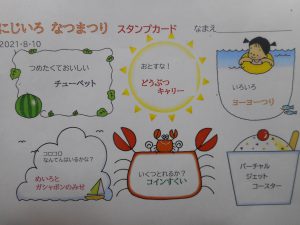 にじいろ なつまつり スタンプカード なまえ
2021-8-10
つめたくておいしい
チューペット
おとすな!
どうぶつ
キャリー
いろいろ
ヨーヨーつり
コロコロ
なんてんはいるかな?
めいろと
ガシャポンのみせ
いくつとれるか?
コインすくい
バーチャル
ジェット
コースター